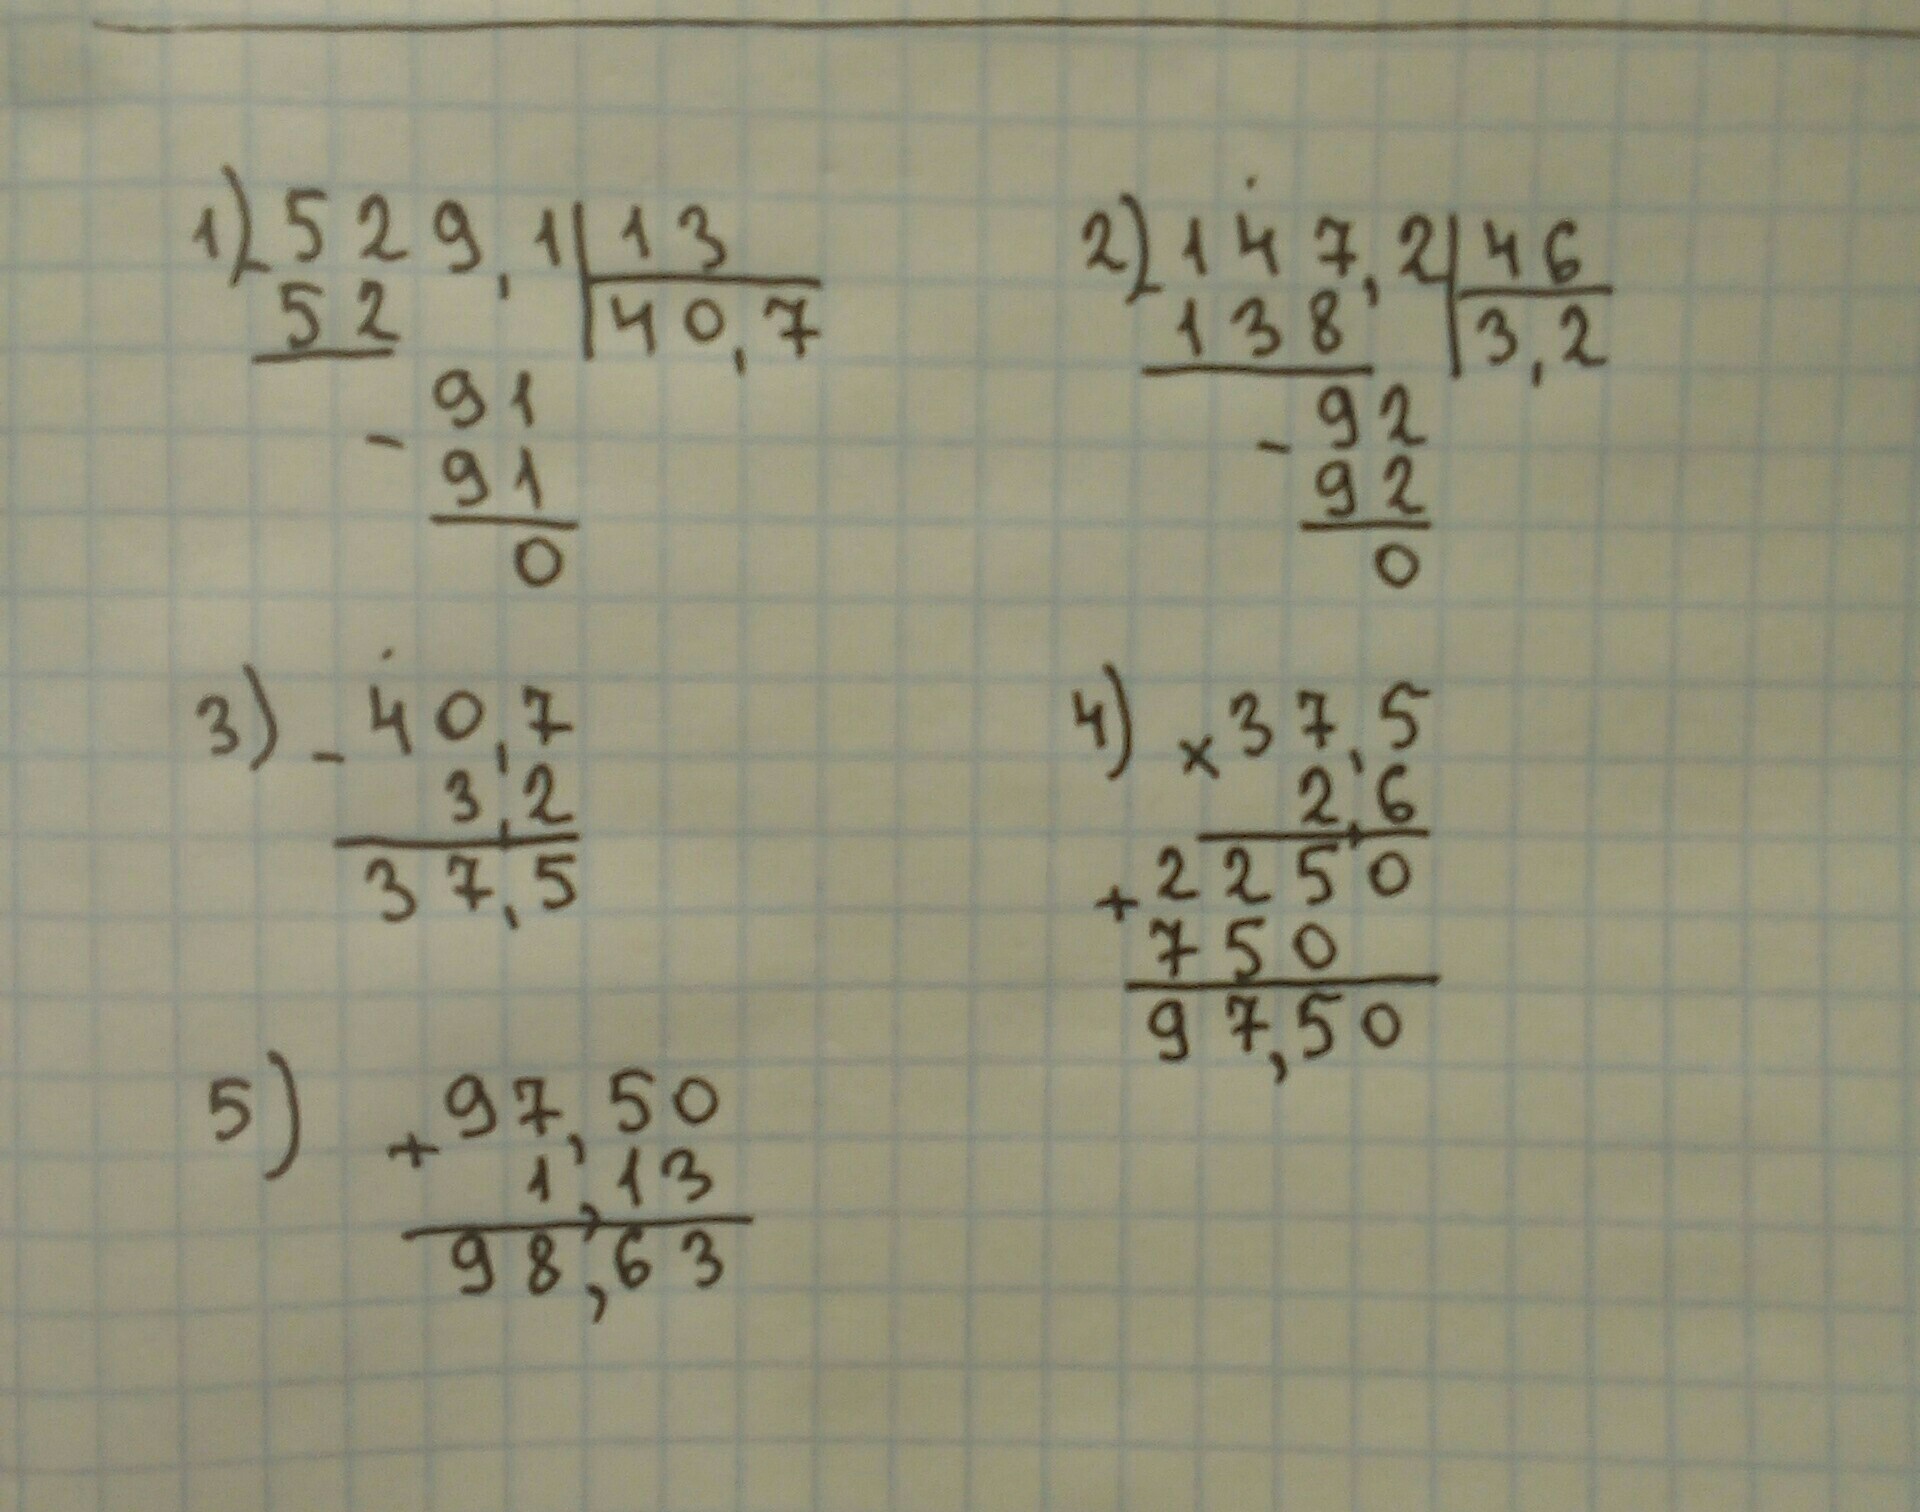 1) 529,1 | 13
52 | 40,7
- 91
91
0
2) 147,2 | 46
138 | 3,2
- 92
92
0
3) - 40,7
3,2
37,5
4) × 37,5
2,6
+ 2250
750
97,50
5) + 97,50
1,13
98,63